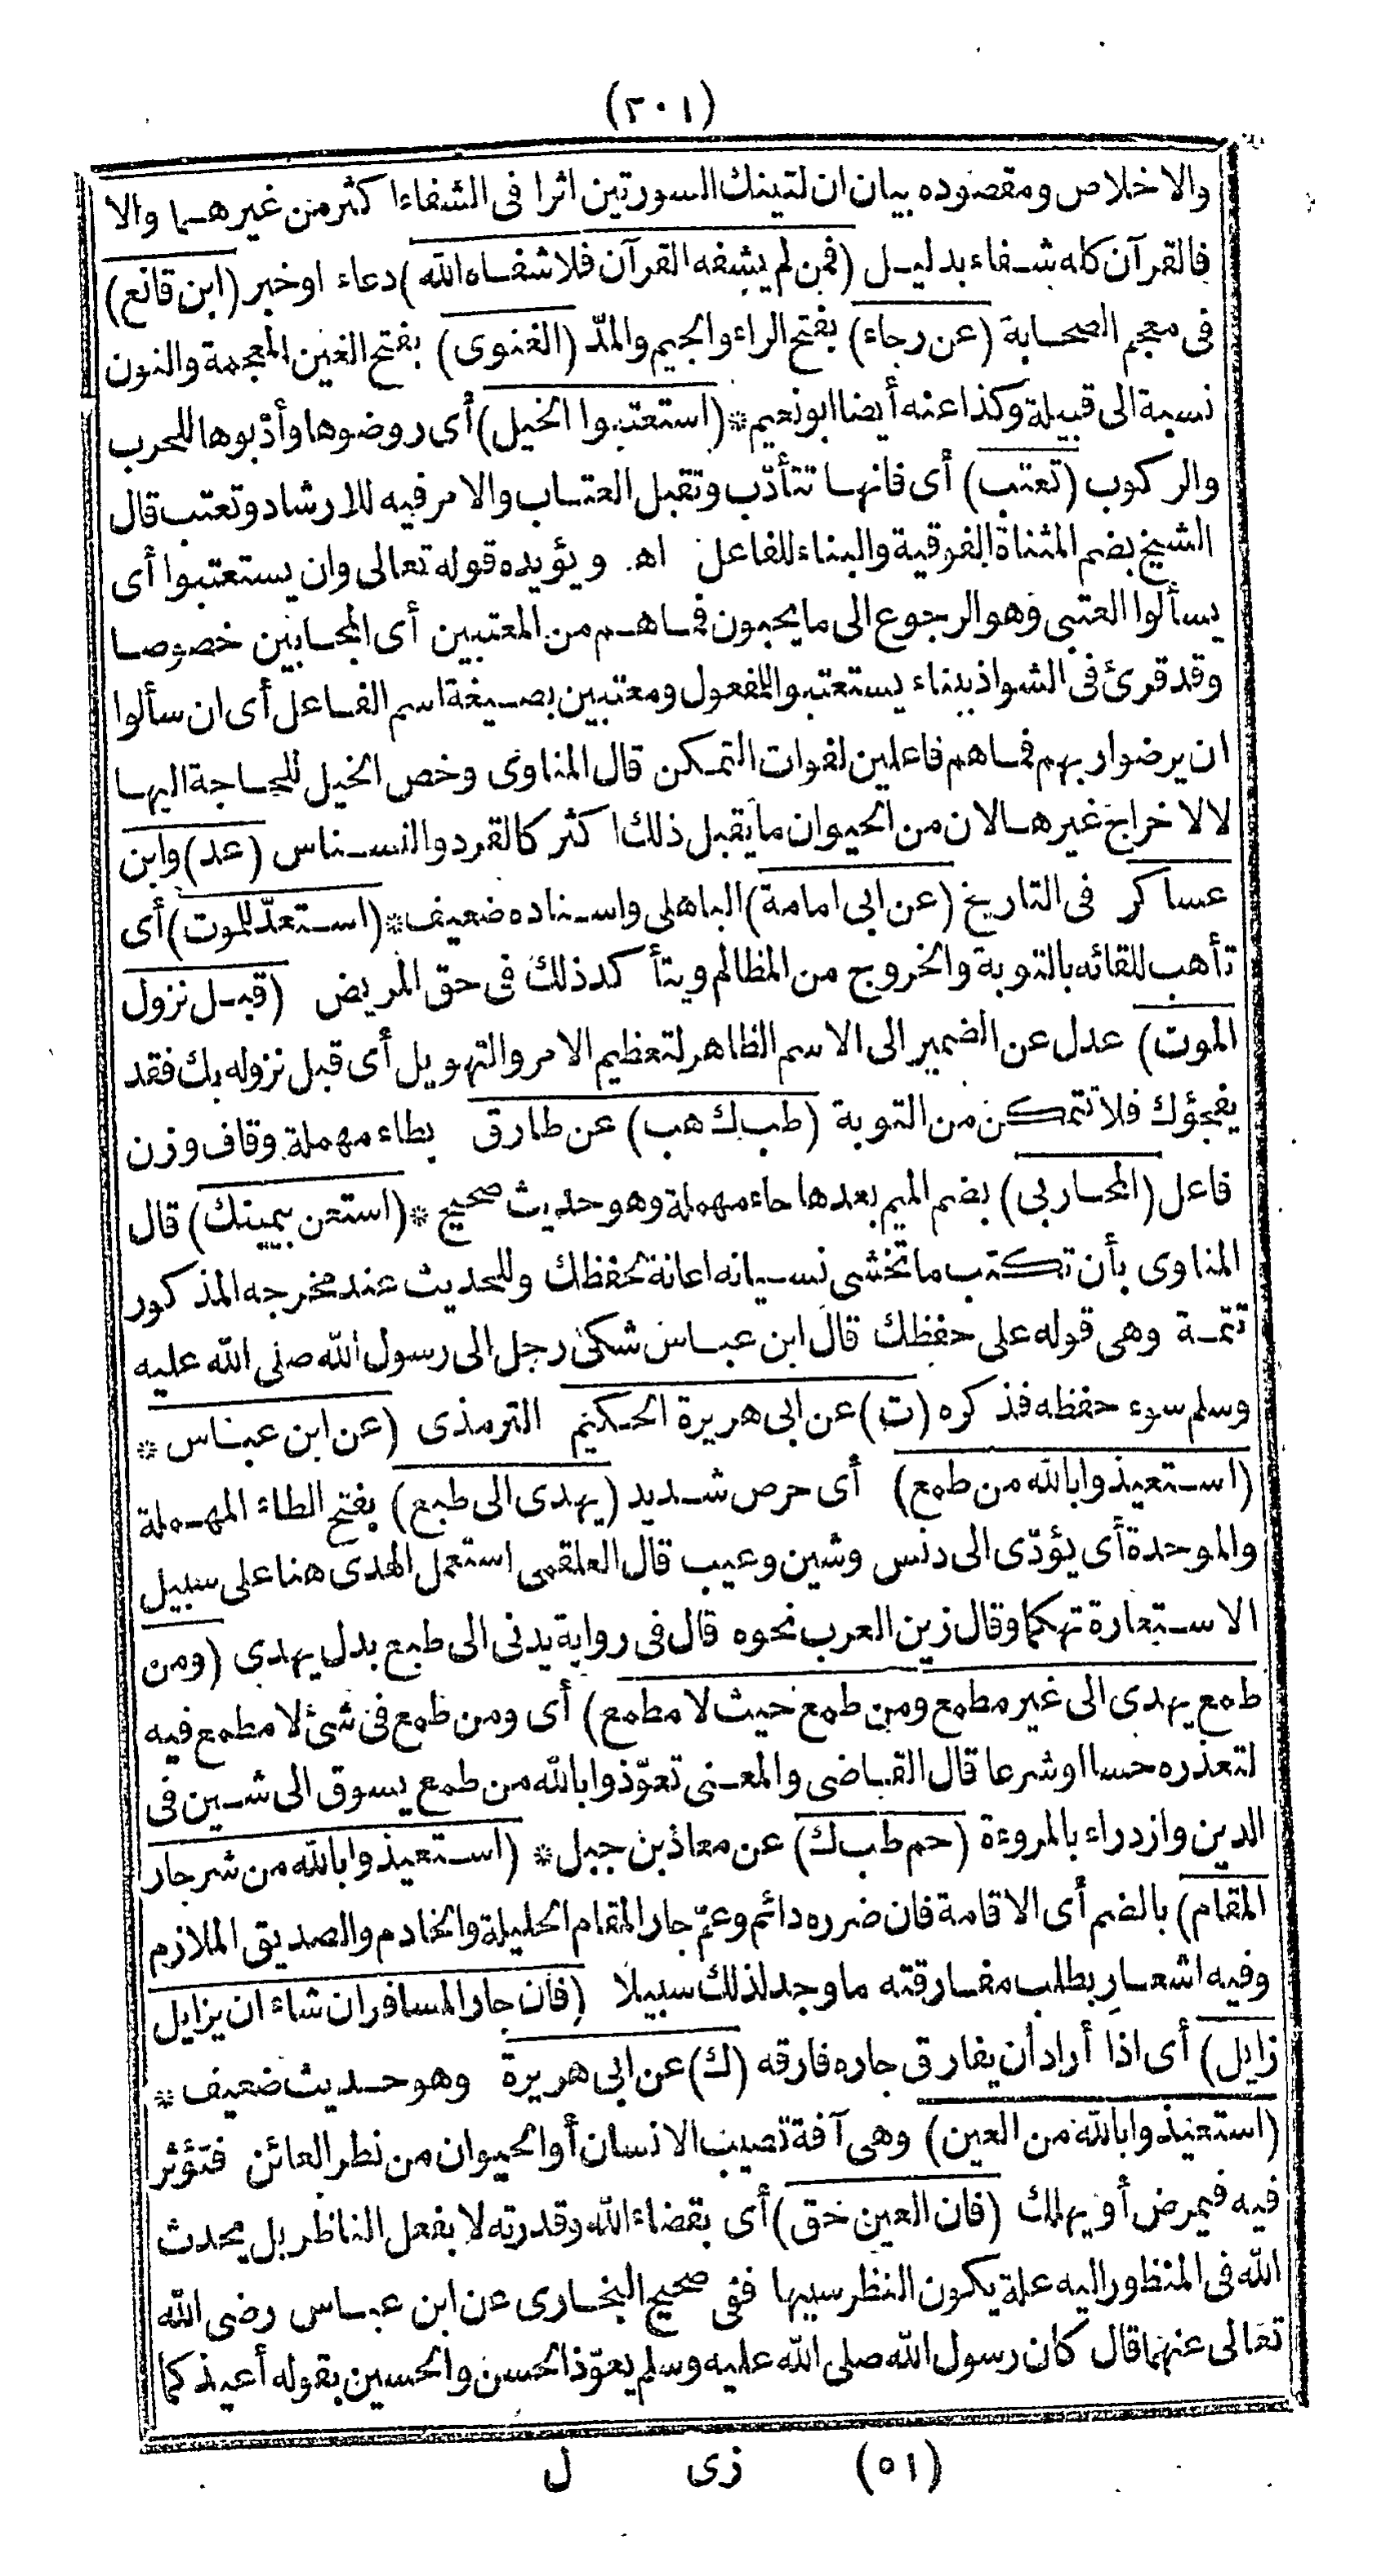 (٢٠١)
والاخلاص ومقصوده بيان ان لتينك السورتين اثرا فى الشفاء اكثر من غيرهما والا
فالقرآن كله شفاء بدليل (فمن لم يشفه القرآن فلا شفاه الله) دعاء او خبر (ابن قانع)
فى معجم الصحابة (عن رجاء) بفتح الراء والجيم والمدّ (الغنوى) بفتح الغين المعجمة والنون
نسبة الى قبيلة وكذا عنه أيضا ابونعيم * (استعتبوا الخيل) أى روضوها وأدّبوها للحرب
والركوب (تعتب) أى فانها تتأدّب وتقبل العتاب والامر فيه للارشاد وتعتب قال
الشيخ بضم المثناة الفوقية والبناء للفاعل اه. ويؤيده قوله تعالى وان يستعتبوا أى
يسألوا العتبى وهو الرجوع الى ما يحبون فما هم من المعتبين أى المجابين خصوصا
وقد قرئ فى الشواذ ببناء يستعتبوا للمفعول ومعتبين بصيغة اسم الفاعل أى ان سألوا
ان يرضوا ربهم فما هم فاعلين لفوات التمكن قال المناوى وخص الخيل للحاجة اليها
لا لاخراج غيرها لان من الحيوان ما يقبل ذلك اكثر كالقرد والنسناس (عد) وابن
عساكر فى التاريخ (عن ابى امامة) الباهلى واسناده ضعيف * (استعدّ للموت) أى
تأهب للقائه بالتوبة والخروج من المظالم ويتأكد ذلك فى حق المريض (قبل نزول
الموت) عدل عن الضمير الى الاسم الظاهر لتعظيم الامر والتهويل أى قبل نزوله بك فقد
يفجؤك فلا تتمكن من التوبة (طب ك هب) عن طارق بطاء مهملة وقاف وزن
فاعل (المحاربى) بضم الميم بعدها حاء مهملة وهو حديث صحيح * (استعن بيمينك) قال
المناوى بأن تكتب ما تخشى نسيانه اعانة لحفظك وللحديث عند مخرجه المذكور
تتمة وهى قوله على حفظك قال ابن عباس شكى رجل الى رسول الله صلى الله عليه
وسلم سوء حفظه فذكره (ت) عن ابى هريرة الحكيم الترمذى (عن ابن عباس *
(استعيذوا بالله من طمع) أى حرص شديد (يهدى الى طبع) بفتح الطاء المهملة
والموحدة أى يؤدّى الى دنس وشين وعيب قال العلقمى استعمل الهدى هنا على سبيل
الاستعارة تهكما وقال زين العرب نحوه قال فى رواية يدنى الى طبع بدل يهدى (ومن
طمع يهدى الى غير مطمع ومن طمع حيث لا مطمع) أى ومن طمع فى شئ لا مطمع فيه
لتعذره حسا او شرعا قال القاضى والمعنى تعوّذوا بالله من طمع يسوق الى شين فى
الدين وازدراء بالمروءة (حم طب ك) عن معاذ بن جبل * (استعيذوا بالله من شر جار
المقام) بالضم أى الاقامة فان ضرره دائم وعمّ جار المقام الحليلة والخادم والصديق الملازم
وفيه اشعار بطلب مفارقته ما وجد لذلك سبيلا (فان جار المسافر ان شاء ان يزايل
زايل) أى اذا أراد أن يفارق جاره فارقه (ك) عن ابى هريرة وهو حديث ضعيف *
(استعيذوا بالله من العين) وهى آفة تصيب الانسان أو الحيوان من نظر العائن فتؤثر
فيه فيمرض أو يهلك (فان العين حق) أى بقضاء الله وقدرته لا بفعل الناظر بل يحدث
الله فى المنظور اليه علة يكون النظر سببها ففى صحيح البخارى عن ابن عباس رضى الله
تعالى عنهما قال كان رسول الله صلى الله عليه وسلم يعوّذ الحسن والحسين بقوله أعيذكما
(٥١) زى ل